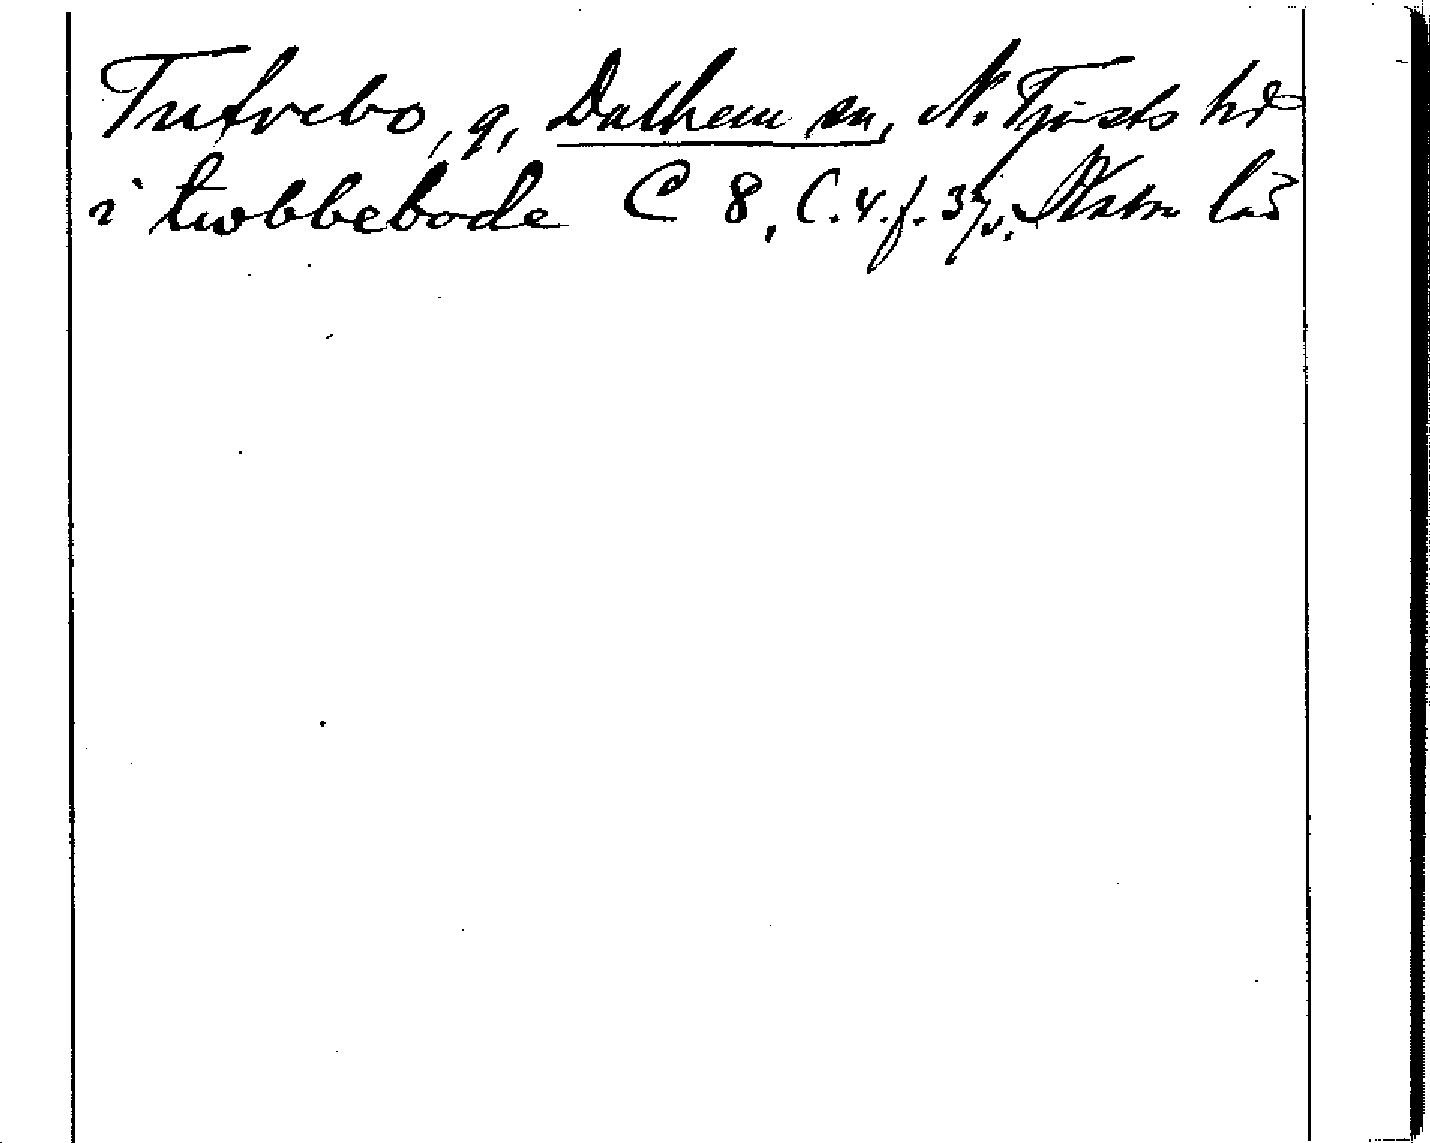 Tufvebo, g, Dalhem sn, N. Tjusts hd
i twbbebode C 8, C. 4. f. 37v. Kalm län